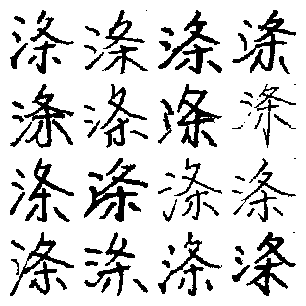 涤涤涤涤
涤涤涤涤
涤涤涤涤
涤涤涤涤